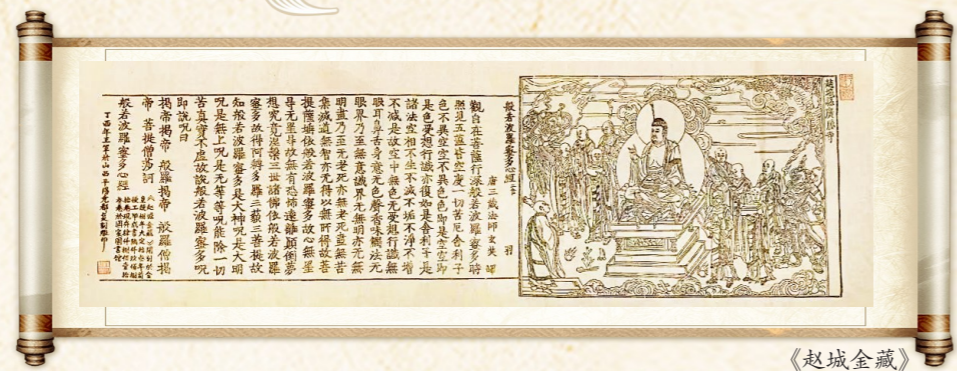 趙城縣廣勝寺
般若波羅蜜多心經
唐三藏法師玄奘 譯 羽
觀自在菩薩行深般若波羅蜜多時
照見五蘊皆空度一切苦厄舍利子
色不異空空不異色色即是空空即
是色受想行識亦復如是舍利子是
諸法空相不生不滅不垢不淨不增
不減是故空中無色无受想行識無
眼耳鼻舌身意无色聲香味觸法无
眼界乃至無意識界无無明亦无無
明盡乃至无老死亦無老死盡無苦
集滅道無智亦无得以無所得故菩
提薩埵依般若波羅蜜多故心無罣
㝵无罣㝵故无有恐怖遠離顛倒夢
想究竟涅槃三世諸佛依般若波羅
蜜多故得阿耨多羅三藐三菩提故
知般若波羅蜜多是大神呪是大明
呪是無上呪是无等等呪能除一切
苦真實不虛故說般若波羅蜜多呪
即說呪曰
揭帝揭帝 般羅揭帝 般羅僧揭
帝 菩提僧莎訶
般若波羅蜜多心經
《赵城金藏》